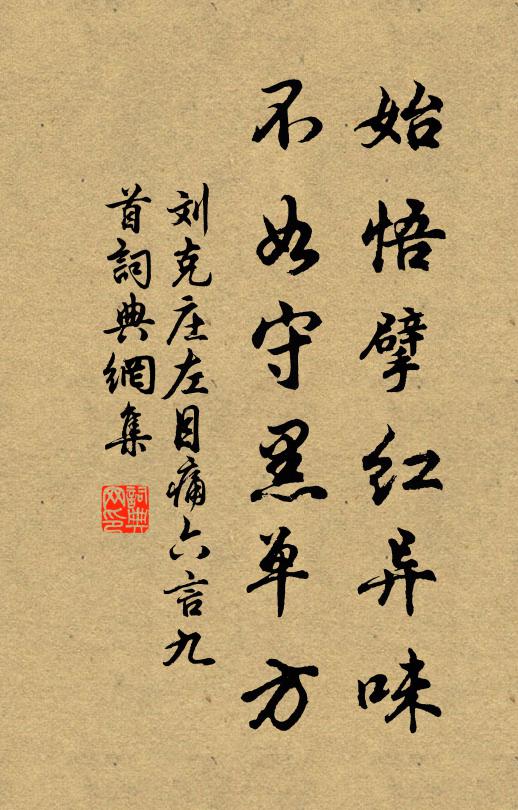 始悟擘红异味
不如守黑单方
刘克庄左目痛六言九
首詞典網集
詞典
网印